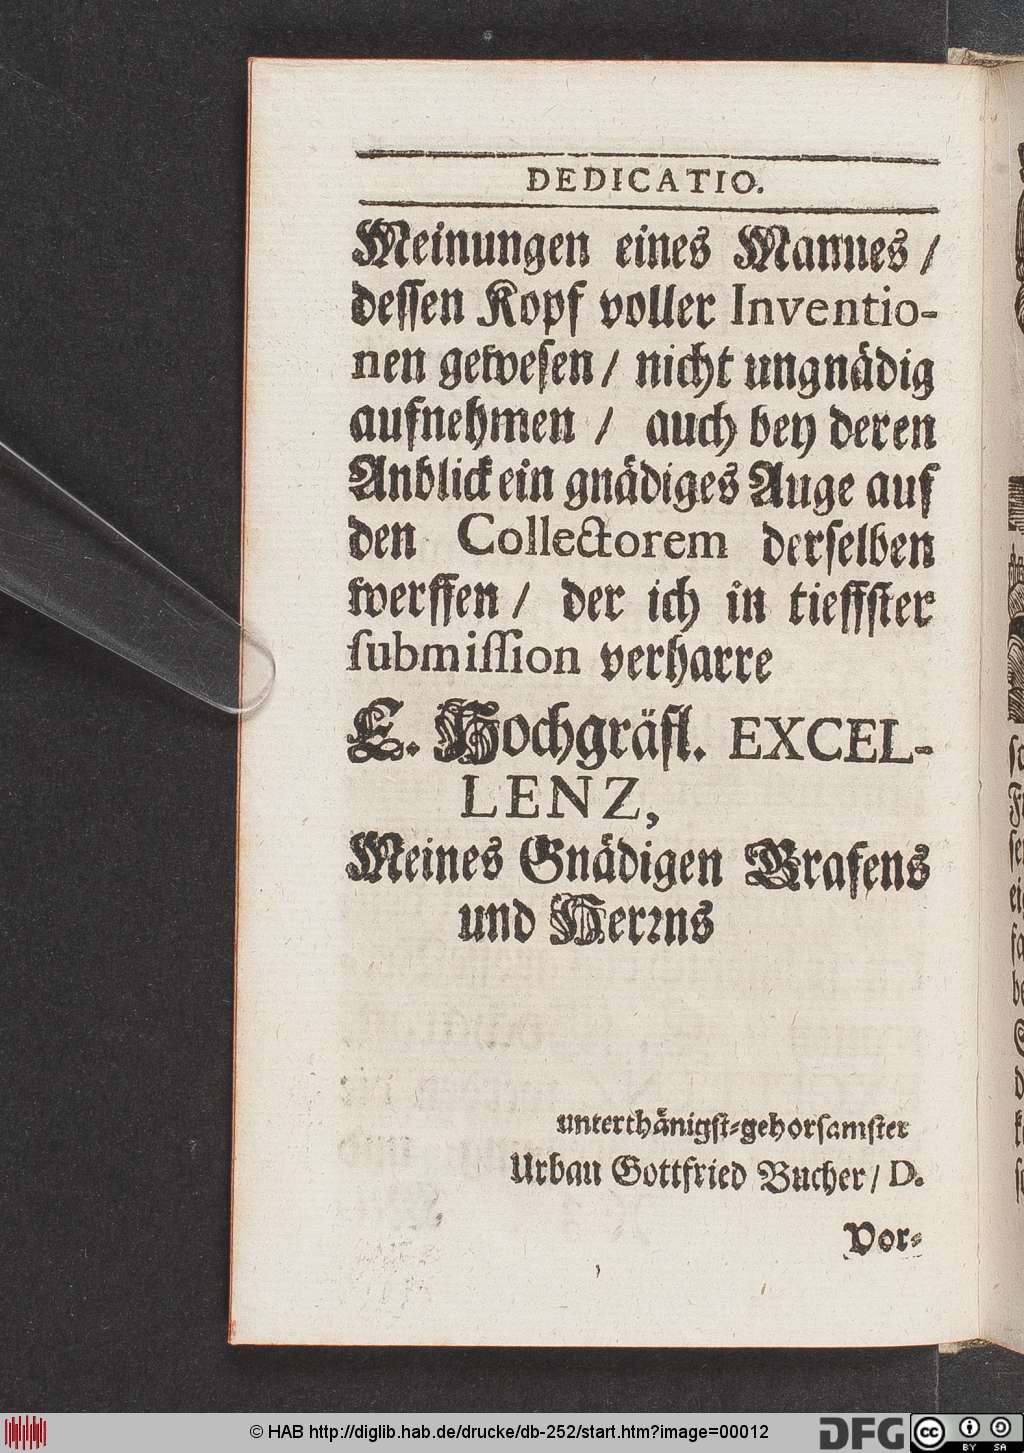 DEDICATIO.
Meinungen eines Mannes /
deſſen Kopf voller Inventio-
nen geweſen / nicht ungnädig
aufnehmen / auch bey deren
Anblick ein gnädiges Auge auf
den Collectorem derſelben
werffen / der ich in tieffſter
ſubmiſſion verharre
E. Hochgräfl. EXCEL-
LENZ,
Meines Gnädigen Grafens
und Herꝛns
unterthänigſt-gehorſamſter
Urban Gottfried Bucher / D.
Vor-
© HAB http://diglib.hab.de/drucke/db-252/start.htm?image=00012
DFG
cc BY SA